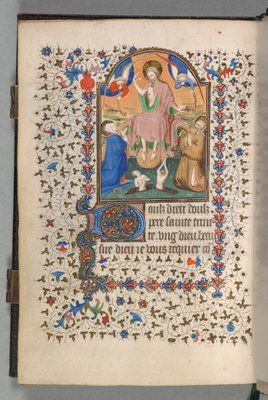 Doulz dieu doulz
pere sainte trini
te. ung dieu. beau
sire dieu ie vous requier cō